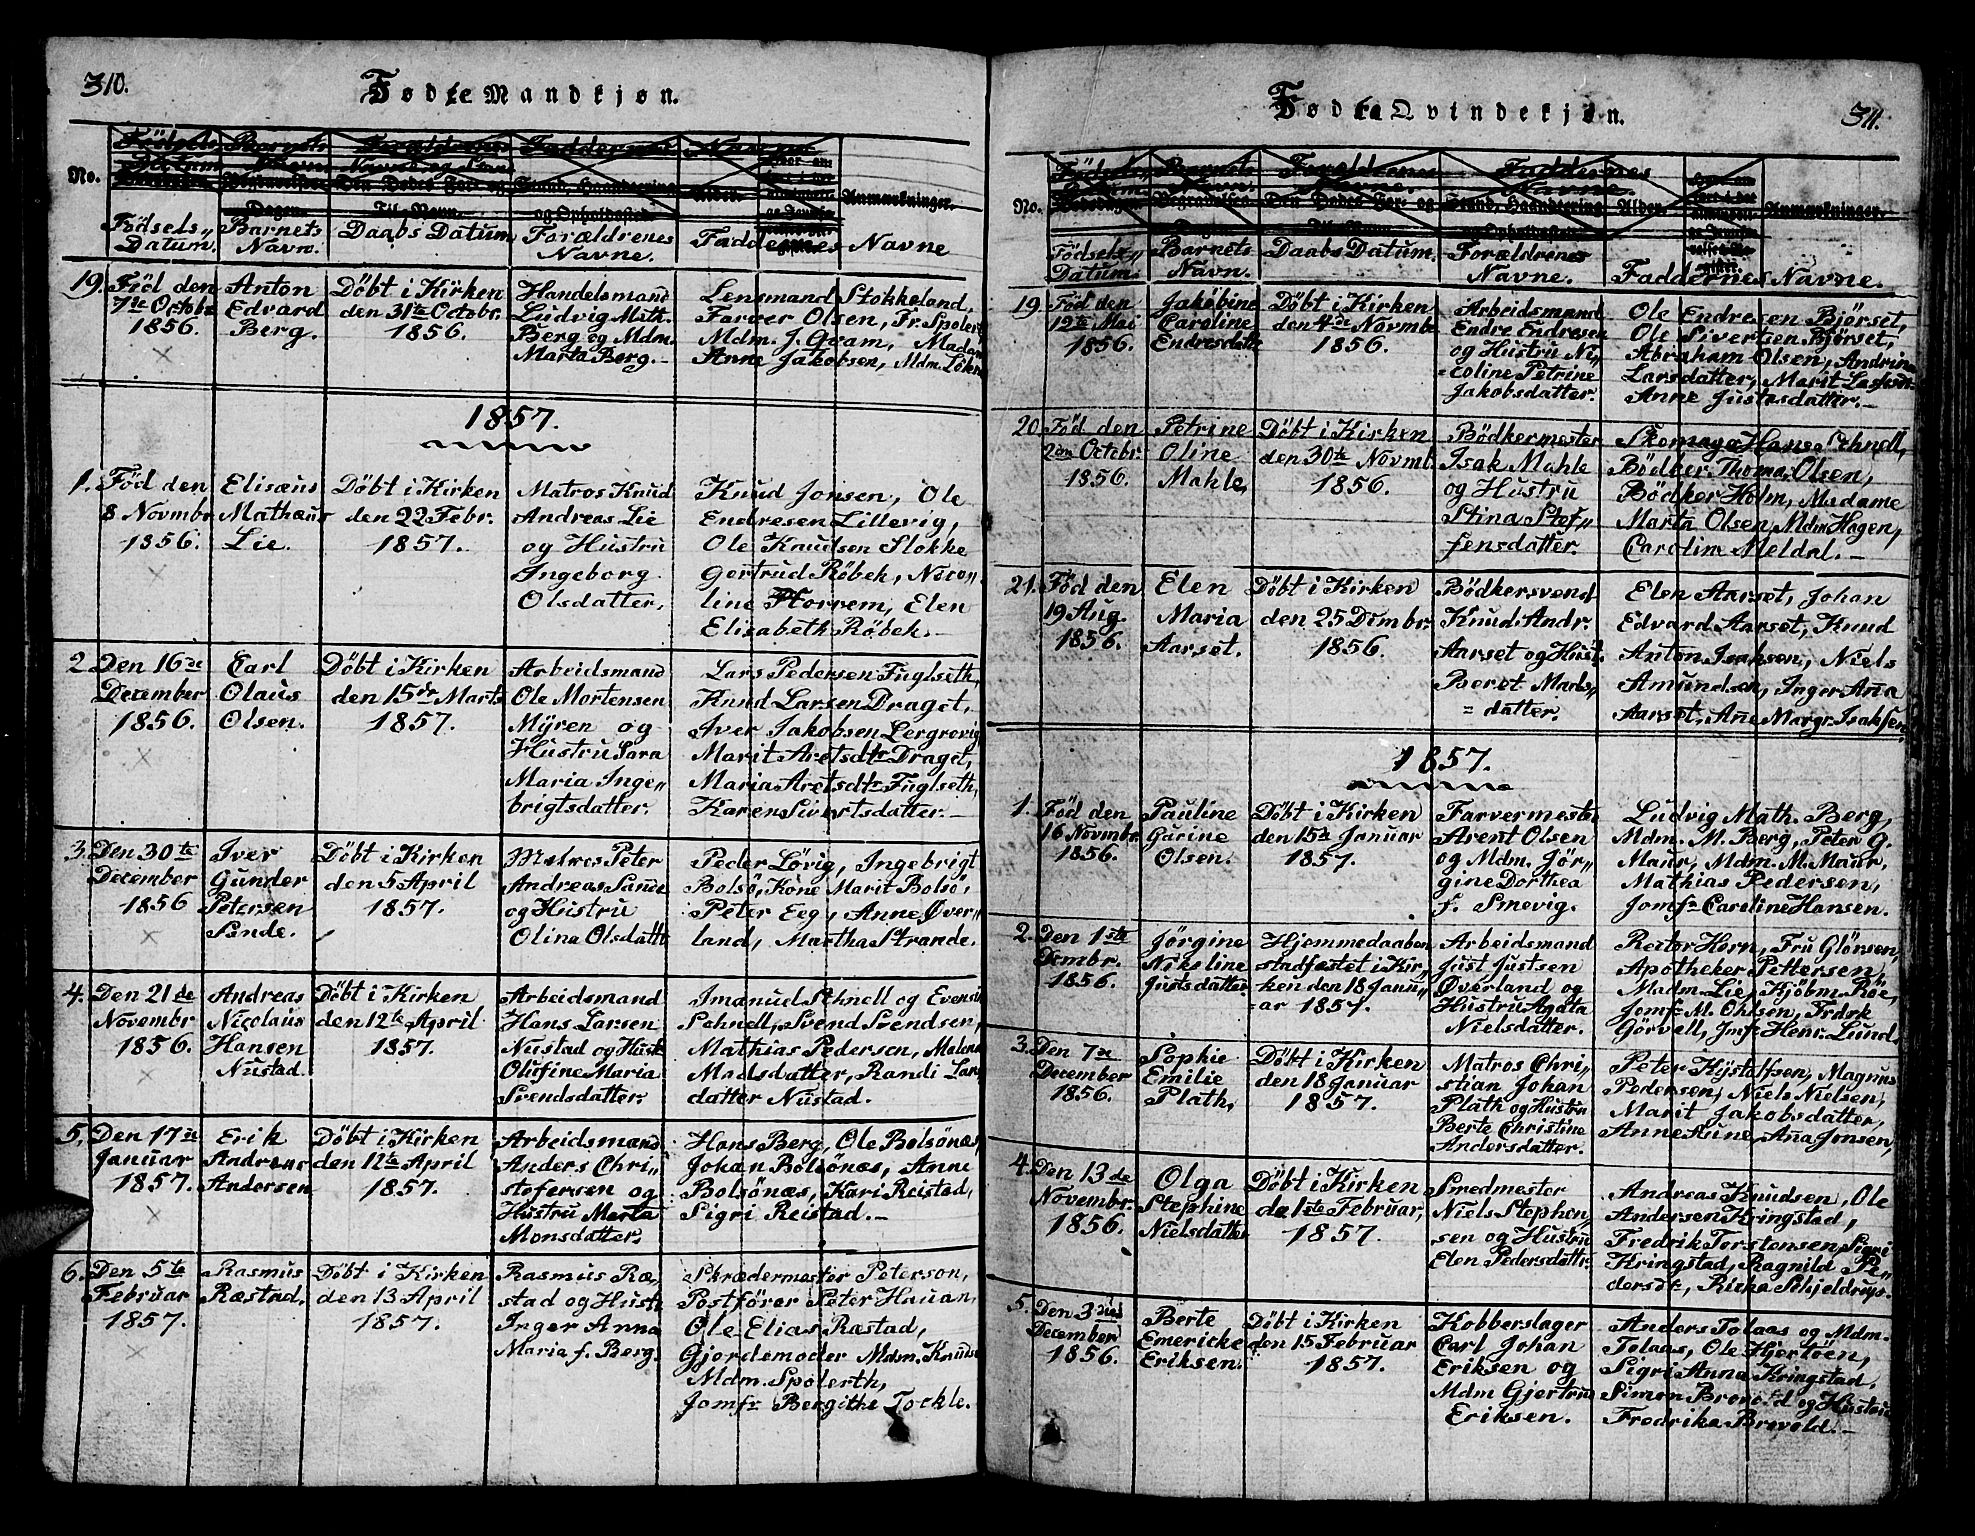 310.
Födte Mandkjøn.
No.
Födsels„
Datum.
Barnets
Navn.
Daabs Datum
Forældrenes
Navne.
Faddernes Navne
Anmærkninger.
19. Föd den
7de Octobr
1856.
Anton
Edvard
Berg.
Döbt i Kirken
den 31te Octobr.
1856.
Handelsmand
Ludvig Math.
Berg og Mdm.
Marta Berg.
Lensmand Stokkeland,
Farver Olsen, Fr. Spolert
Mdm. J. Qvam, Madam
Anne Jakobsen, Mdm. Lökn
1857.
1. Föd den
8 Novmbr
1856.
Elisæus
Mathæus
Lie.
Döbt i Kirken
den 22 Febr.
1857.
Matros Knud
Andreas Lie
og Hustru
Ingeborg
Olsdatter,
Knud Jonsen, Ole
Endresen Lillevig,
Ole Knudsen Stokke
Gortrud Röbek, Nico„
line Horrem, Elen
Elisabeth Röbek.
2. Den 16de
December
1856.
Carl
Olaus
Olsen.
Döbt i Kirken
den 15de Marts
1857.
Arbeidsmand
Ole Mortensen
Mÿren og
Hustru Sara
Maria Inge„
brigtsdatter.
Lars Pedersen Fuglseth,
Knud Larsen Draget,
Iver Jakobsen Lergrovig
Marit Aretsdtr Draget,
Maria Aretsdtr Fuglseth,
Karen Sivertsdatter.
3. Den 30te
December
1856
Iver
Gunder
Petersen
Sande.
Döbt i Kirken
den 5 April
1857.
Matros Peter
Andreas Sande
og Hustru
Olina Olsdattr
Peder Lövig, Ingebrigt
Bolsö, Kone Marit Bolsö,
Peter Eeg, Anne Øver„
land, Martha Strande.
4. Den 21de
Novembr
1856.
Andreas
Nicolaus
Hansen
Nustad.
Döbt i Kirken
den 12te April
1857.
Arbeidsmand
Hans Larsen
Nustad og Hustr
Olufine Maria
Svendsdatter.
Imanud Schnell og Evensi
Schnell, Svend Svendsen,
Mathias Pedersen, Malena
Madsdatter, Randi Lars
datter Nustad.
5. Den 17de
Januar
1857.
Erik
Andreas
Andersen
Döbt i Kirken
den 12te April
1857.
Arbeidsmand
Anders Chri„
stofersen og
Hustru Marta
Monsdatter.
Hans Berg, Ole Bolsönæs,
Johan Bolsönæs, Anne
Bolsönæs, Kari Reistad,
Sigri Reistad.
6. Den 5te
Februar
1857.
Rasmus
Ræstad.
Döbt i Kirken
den 13 April
1857.
Rasmus Ræ„
stad og Hustr
Inger Anna
Maria f. Berg.
Skrædermester Peterson,
Postförer Peter Hauan,
Ole Elias Ræstad,
Gjordemoder Mdm. Knuds
Mdm. Spolerth,
Jomfr Bergithe Tockle.
311.
Födte Qvindekjøn.
No.
Födsels„
Datum.
Barnets
Navn.
Daabs Datum.
Forældrenes
Navne.
Faddernes Navne.
Anmærkninger.
19. Föd den
12te Mai
1856.
Jakobine
Caroline
Endresdatter
Döbt i Kirken
den 4de Novmbr
1856.
Arbeidsmand
Endre Endresen
og Hustru Ni„
coline Petrine
Jakobsdatter.
Ole Endresen Björset,
Ole Sivertsen Björset,
Abraham Olsen, Andrina
Larsdatter, Marit Larsdr
Anne Justesdatter.
20. Föd den
2den Octobr.
1856.
Petrine
Oline
Mahle,
Döbt i Kirken
den 30te Novmb.
1856.
Bödkermester
Isak Mahle
og Hustru
Stina Stef„
fensdatter.
Skomager Hans Schnell,
Bödker Thomas Olsen,
Bödker Holm, Madame
Marta Olsen, Mdm Hagen,
Caroline Meldal.
21. Föd den
19 Aug.
1856.
Elen
Maria
Aarset.
Döbt i Kirken
den 25 Dcmbr.
1856.
Bödkersvend
Knud Andr.
Aarset og Hust.
Beret Mads„
datter.
Elen Aarset, Johan
Edvard Aarset, Knud
Anton Isaksen, Niels
Amundsen, Inger Ana
Aarset, Ane Margr. Isaksen
1857.
1. Föd den
16 Novmbr.
1856.
Pauline
Garine
Olsen.
Döbt i Kirken
den 15de Januar
1857.
Farvermester
Arent Olsen
og Mdm. Jör„
gine Dorthea
f. Smevig.
Ludvig Math. Berg,
Mdm. M. Berg, Peter G.
Maur, Mdm. M. Maur,
Mathias Pedersen,
Jomfr Caroline Hansen.
2. Den 1ste
Dcmbr.
1856.
Jörgine
Nikoline
Justsdatter.
Hjemmedaaben
stadfæstet i Kir„
ken den 18 Janu„
ar 1857.
Arbeidsmand
Just Justsen
Øverland og
Hustru Agata
Nielsdatter.
Rector Horn, Fru Glörsen,
Apotheker Pettersen,
Madm. Lie, Kjöbm. Röe,
Jomfr M. Ohlsen, Frdrk
Görvell, Jmfr Henr. Lund.
3. Den 7de
December
1856.
Sophie
Emilie
Plath,
Döbt i Kirken
den 18 Januar
1857.
Matros Chri„
stian Johan
Plath og Hustru
Berte Christine
Andersdatter.
Peter Kystoffsen, Magnus
Pedersen, Niels Nielsen,
Marit Jakobsdatter,
Anne Aune, Ana Jonsen,
4. Den 13de
November
1856.
Olga
Stephine
Nielsdatter
Döbt i Kirken
de 1ste Februar,
1857.
Smedmester
Niels Stephen„
sen og Hustru
Elen Pedersdattr.
Andreas Knudsen, Ole
Andersen Kringstad,
Fredrik Torstensen, Sigri
Kringstad, Ragnild Pe„
dersdr, Rika Schjeldrups.
5. Den 3die
December
1856.
Berte
Emericke
Eriksen.
Döbt i Kirken
den 15 Februar
1857.
Kobberslager
Carl Johan
Eriksen og
Mdm Gjertru
Eriksen.
Anders Tolaas og Mdm.
Tolaas, Ole Hjertöen,
Sigri Anna Kringstad,
Simon Brovold og Hustru
Fredrika Brovold.